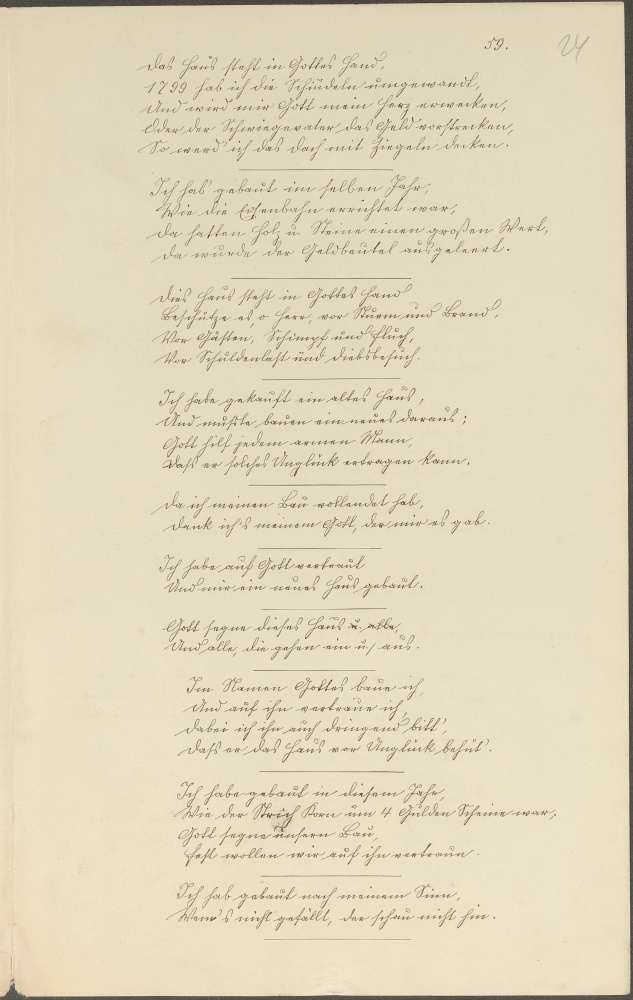 59.
24
Das Haus steht in Gottes Hand,
1799 hab ich die Schindeln umgewandt,
Und wird mir Gott mein Herz erwecken,
Oder der Schwiegervater das Geld vorstrecken,
So werd' ich das Dach mit Ziegeln decken.
Ich hab' gebaut im selben Jahr,
Wie die Eisenbahn errichtet war,
Da hatten Holz u. Steine einen großen Wert,
Da wurde der Geldbeutel ausgeleert.
Dies Haus steht in Gottes Hand
Beschütze es, o Herr, vor Sturm und Brand,
Vor Gästen, Schimpf und Fluch,
Vor Schuldenlast und Diebsbesuch.
Ich habe gekauft ein altes Haus,
Und mußte bauen ein neues daraus;
Gott hilf jedem armen Mann,
Daß er solches Unglück ertragen kann.
Da ich meinen Bau vollendet hab,
Dank ich's meinem Gott, der mir es gab.
Ich habe auf Gott vertraut
Und mir ein neues Haus gebaut.
Gott segne dieses Haus u. alle,
Und alle, die gehen ein u. aus.
Im Namen Gottes baue ich,
Und auf ihn vertraue ich,
Dabei ich ihn auch dringend bitt',
Daß er das Haus vor Unglück behüt'.
Ich habe gebaut in diesem Jahr,
Wie der Strich Korn um 4 Gulden Scheine war,
Gott segne unsern Bau,
Fest wollen wir auf ihn vertraun.
Ich hab gebaut nach meinem Sinn,
Wem's nicht gefällt, der schau nicht hin.